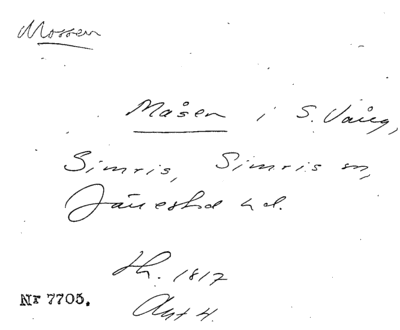 Mossen
Måsen i S. Vång,
Simris, Simris sn,
Järrestad hd.
Lh. 1817
Akt 4.
Nr 7705.